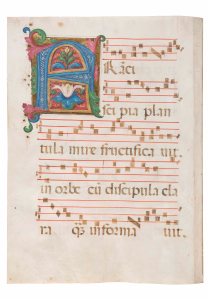 FRāci
sci pia plan
tula mire fructifica uit.
in orbe cū discipula cla
ra q̄s informa uit.